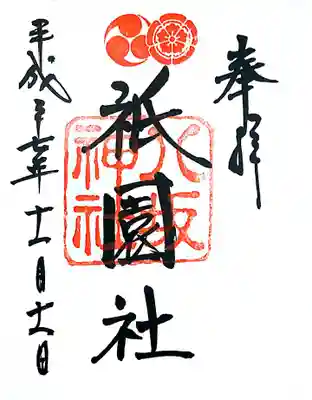 奉拝
祇園社
八坂
神社
平成二十七年十一月日